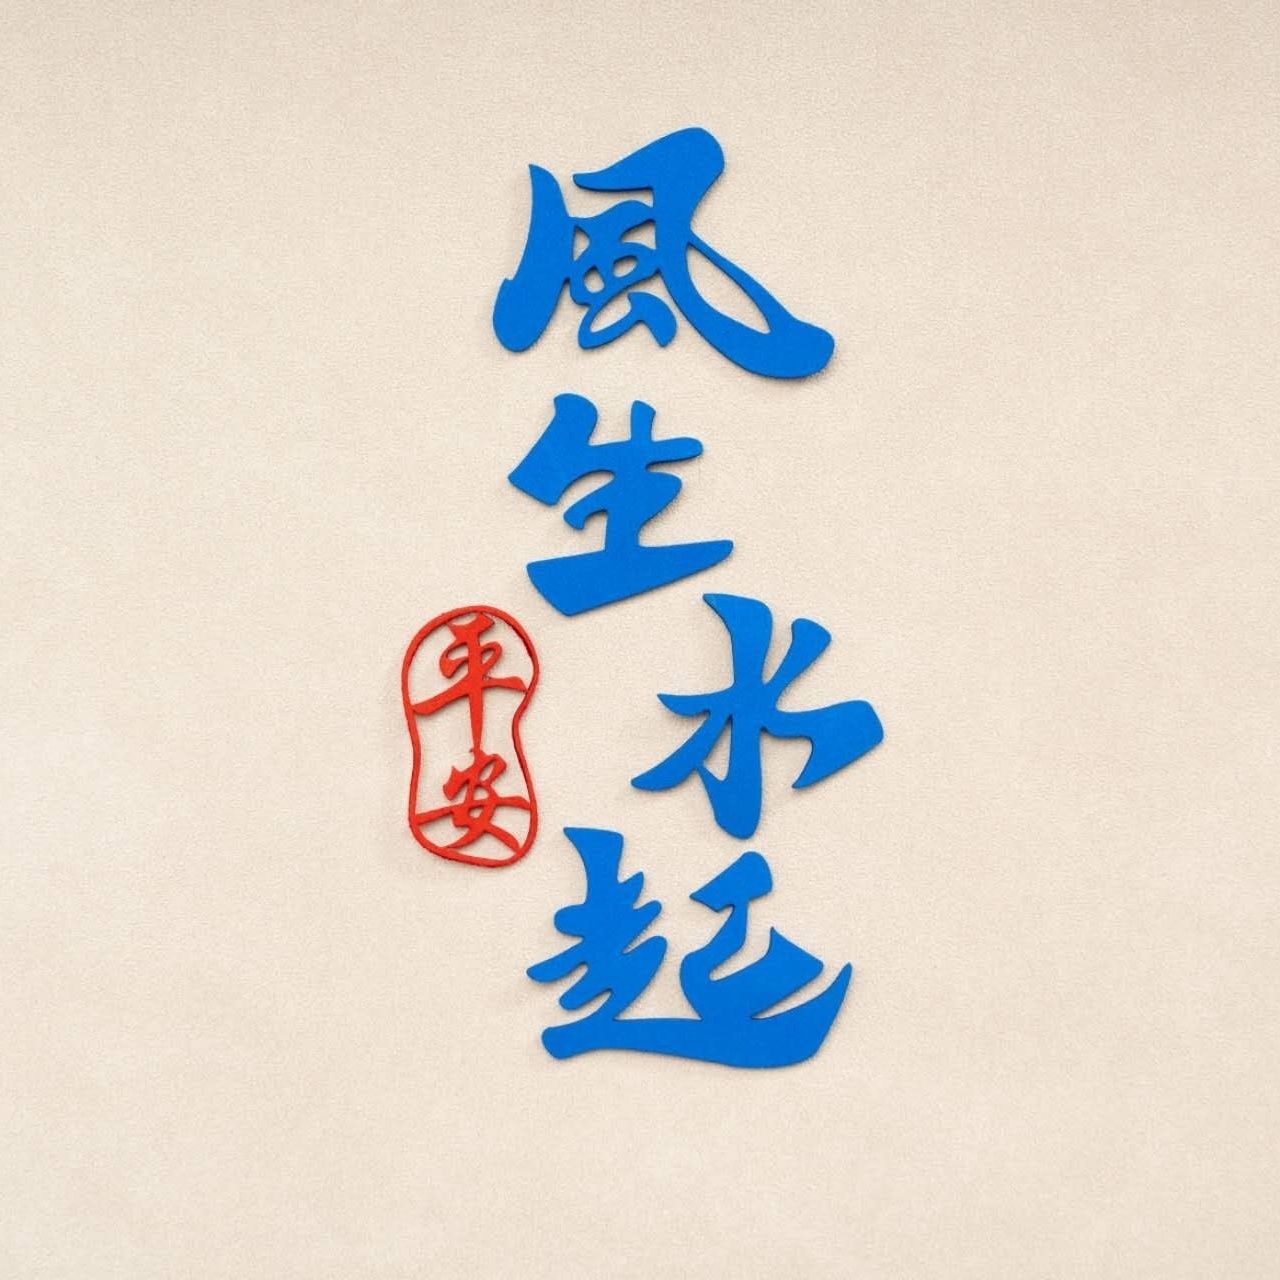 風生水起
平安